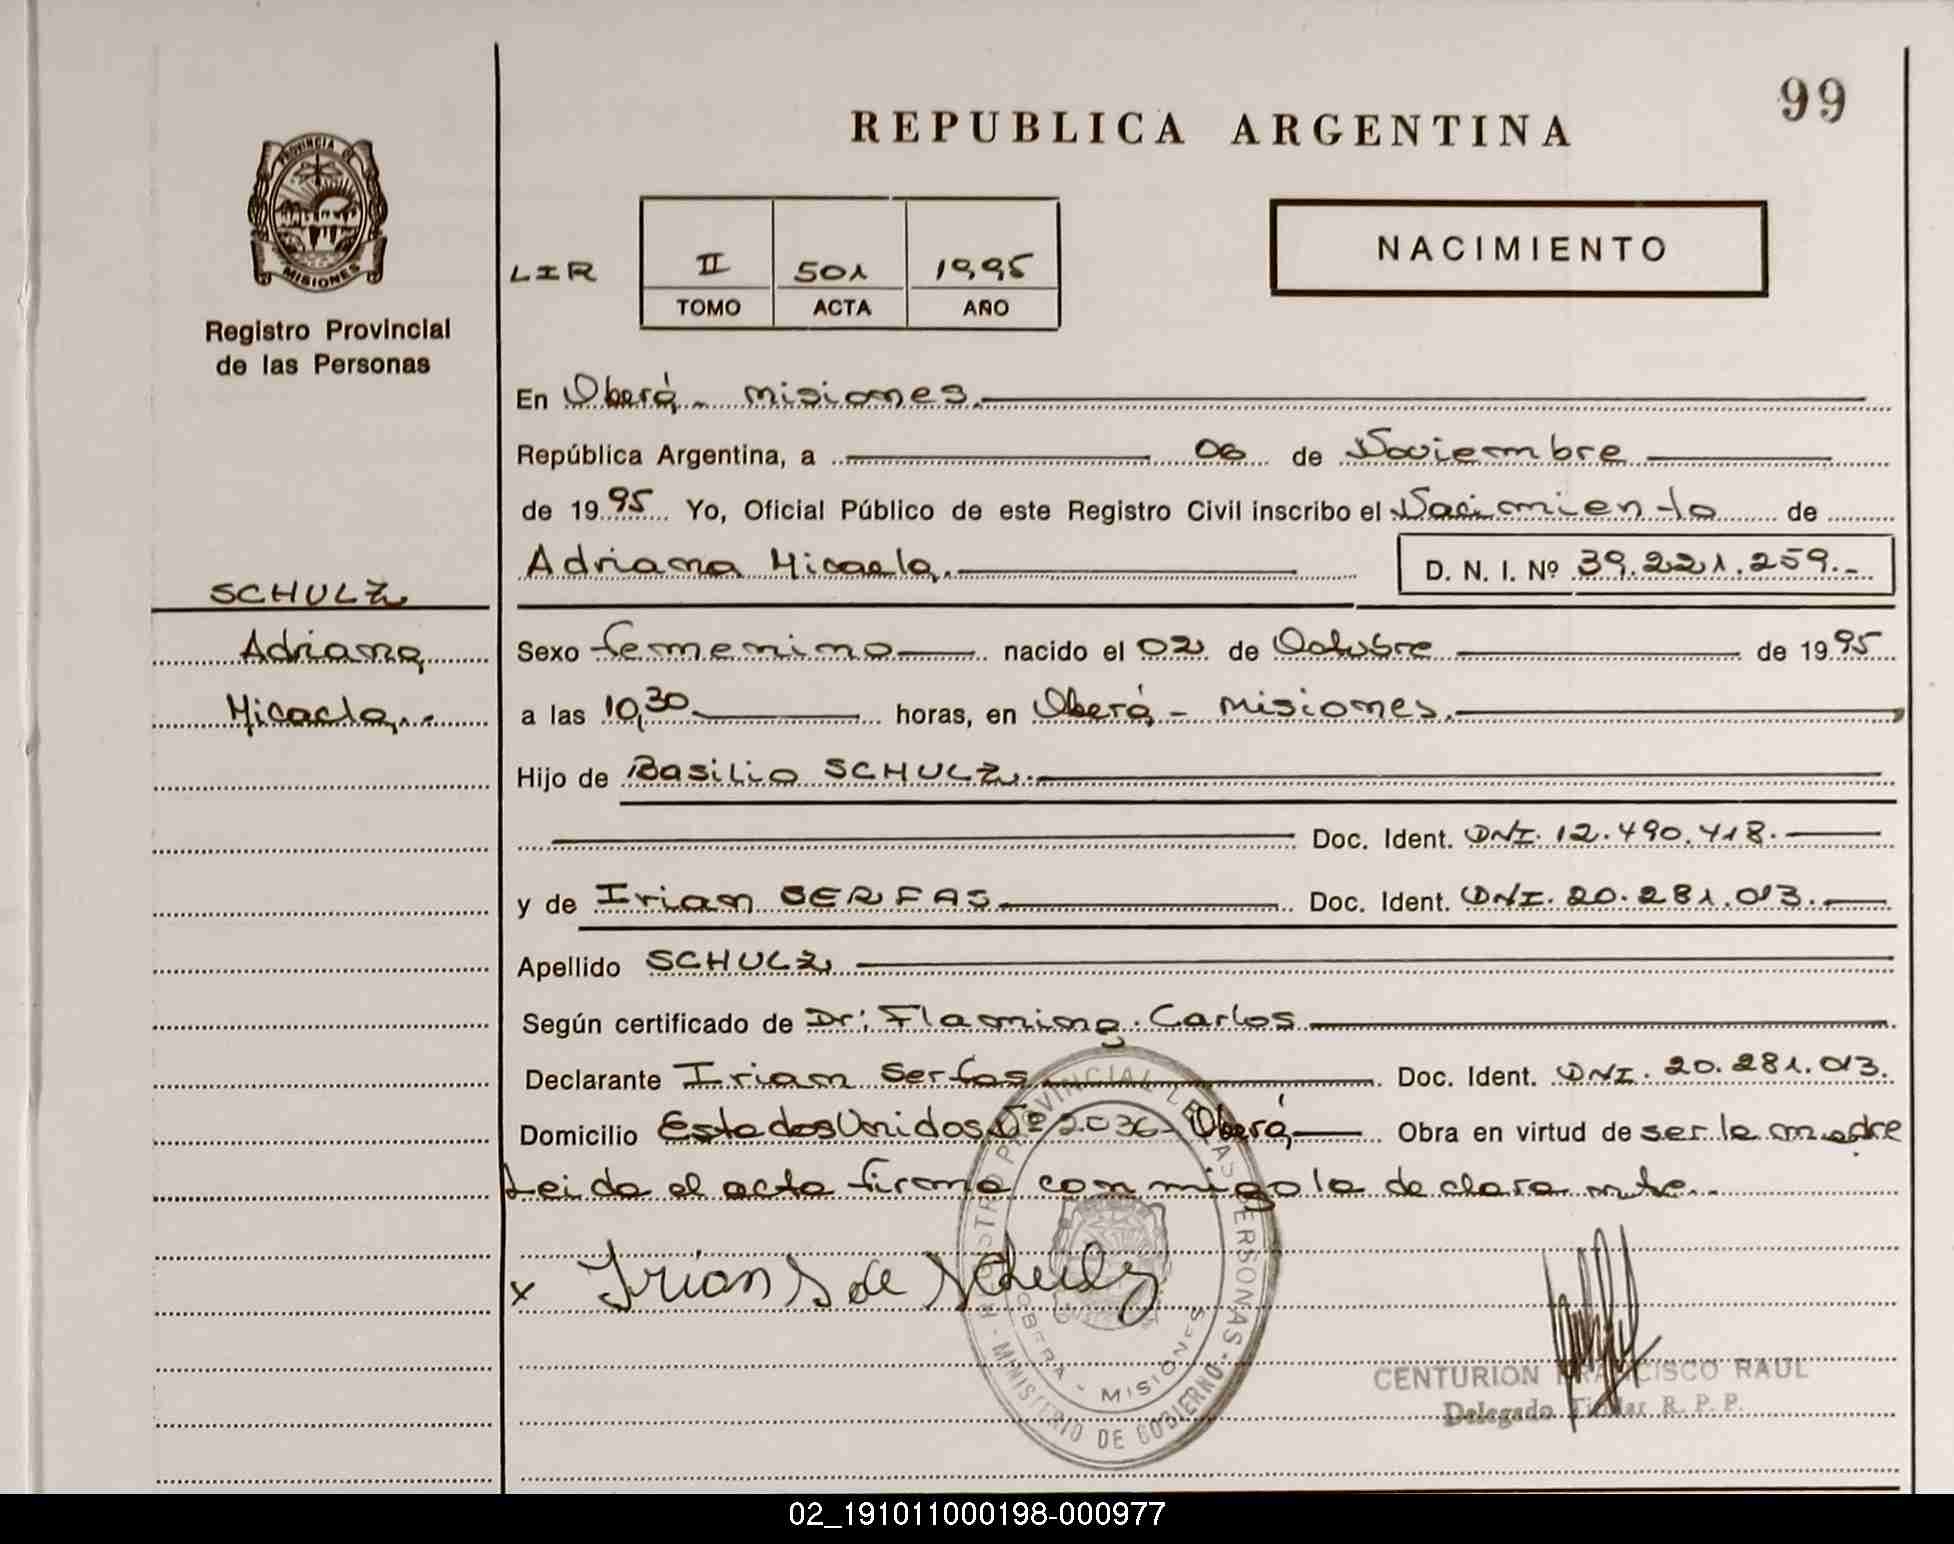 99
REPUBLICA ARGENTINA
PROVINCIA DE
MISIONES
NACIMIENTO
LIR II 501 1995
TOMO ACTA AÑO
Registro Provincial
de las Personas
En Oberá - misiones.
República Argentina, a 06 de Noviembre
de 1995 Yo, Oficial Público de este Registro Civil inscribo el Nacimiento de
Adriana Micaela. D. N. I. Nº 39.221.259.-
SCHULZ
Adriana Sexo femenino nacido el 02 de Octubre de 1995
Micaela.- a las 10,30 horas, en Oberá - misiones.
Hijo de Basilio SCHULZ.
Doc. Ident. DNI. 12.490.418.
y de Irian SERFAS Doc. Ident. DNI. 20.281.013.
Apellido SCHULZ
Según certificado de Dr: Flaming. Carlos
Declarante Irian Serfas Doc. Ident. DNI. 20.281.013.
Domicilio Estados Unidos Nº 2036 - Oberá Obra en virtud de ser la madre
Leida el acta firma conmigo la declarante.-
x Irian S de Schulz
REGISTRO PROVINCIAL DE LAS PERSONAS - MINISTERIO DE GOBIERNO -
OBERA - MISIONES
CENTURION FRANCISCO RAUL
Delegado Titular R. P. P.
02_191011000198-000977